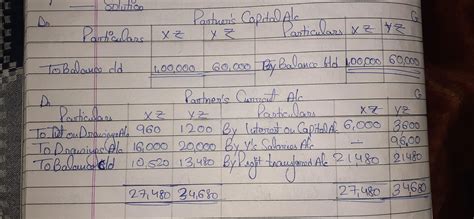 Solution
Dr Partner's Capital A/c Cr
Particulars X ₹ Y ₹ Particulars X ₹ Y ₹
To Balance c/d 1,00,000 60,000 By Balance b/d 1,00,000 60,000
Dr Partner's Current A/c Cr
Particulars X ₹ Y ₹ Particulars X ₹ Y ₹
To Int on Drawings A/c 960 1200 By Interest on Capital A/c 6,000 3600
To Drawings A/c 16,000 20,000 By Y's Salaries A/c — 9600
To Balance c/d 10,520 13,480 By Profit transferred A/c 21480 21480
27,480 34,680 27,480 34,680